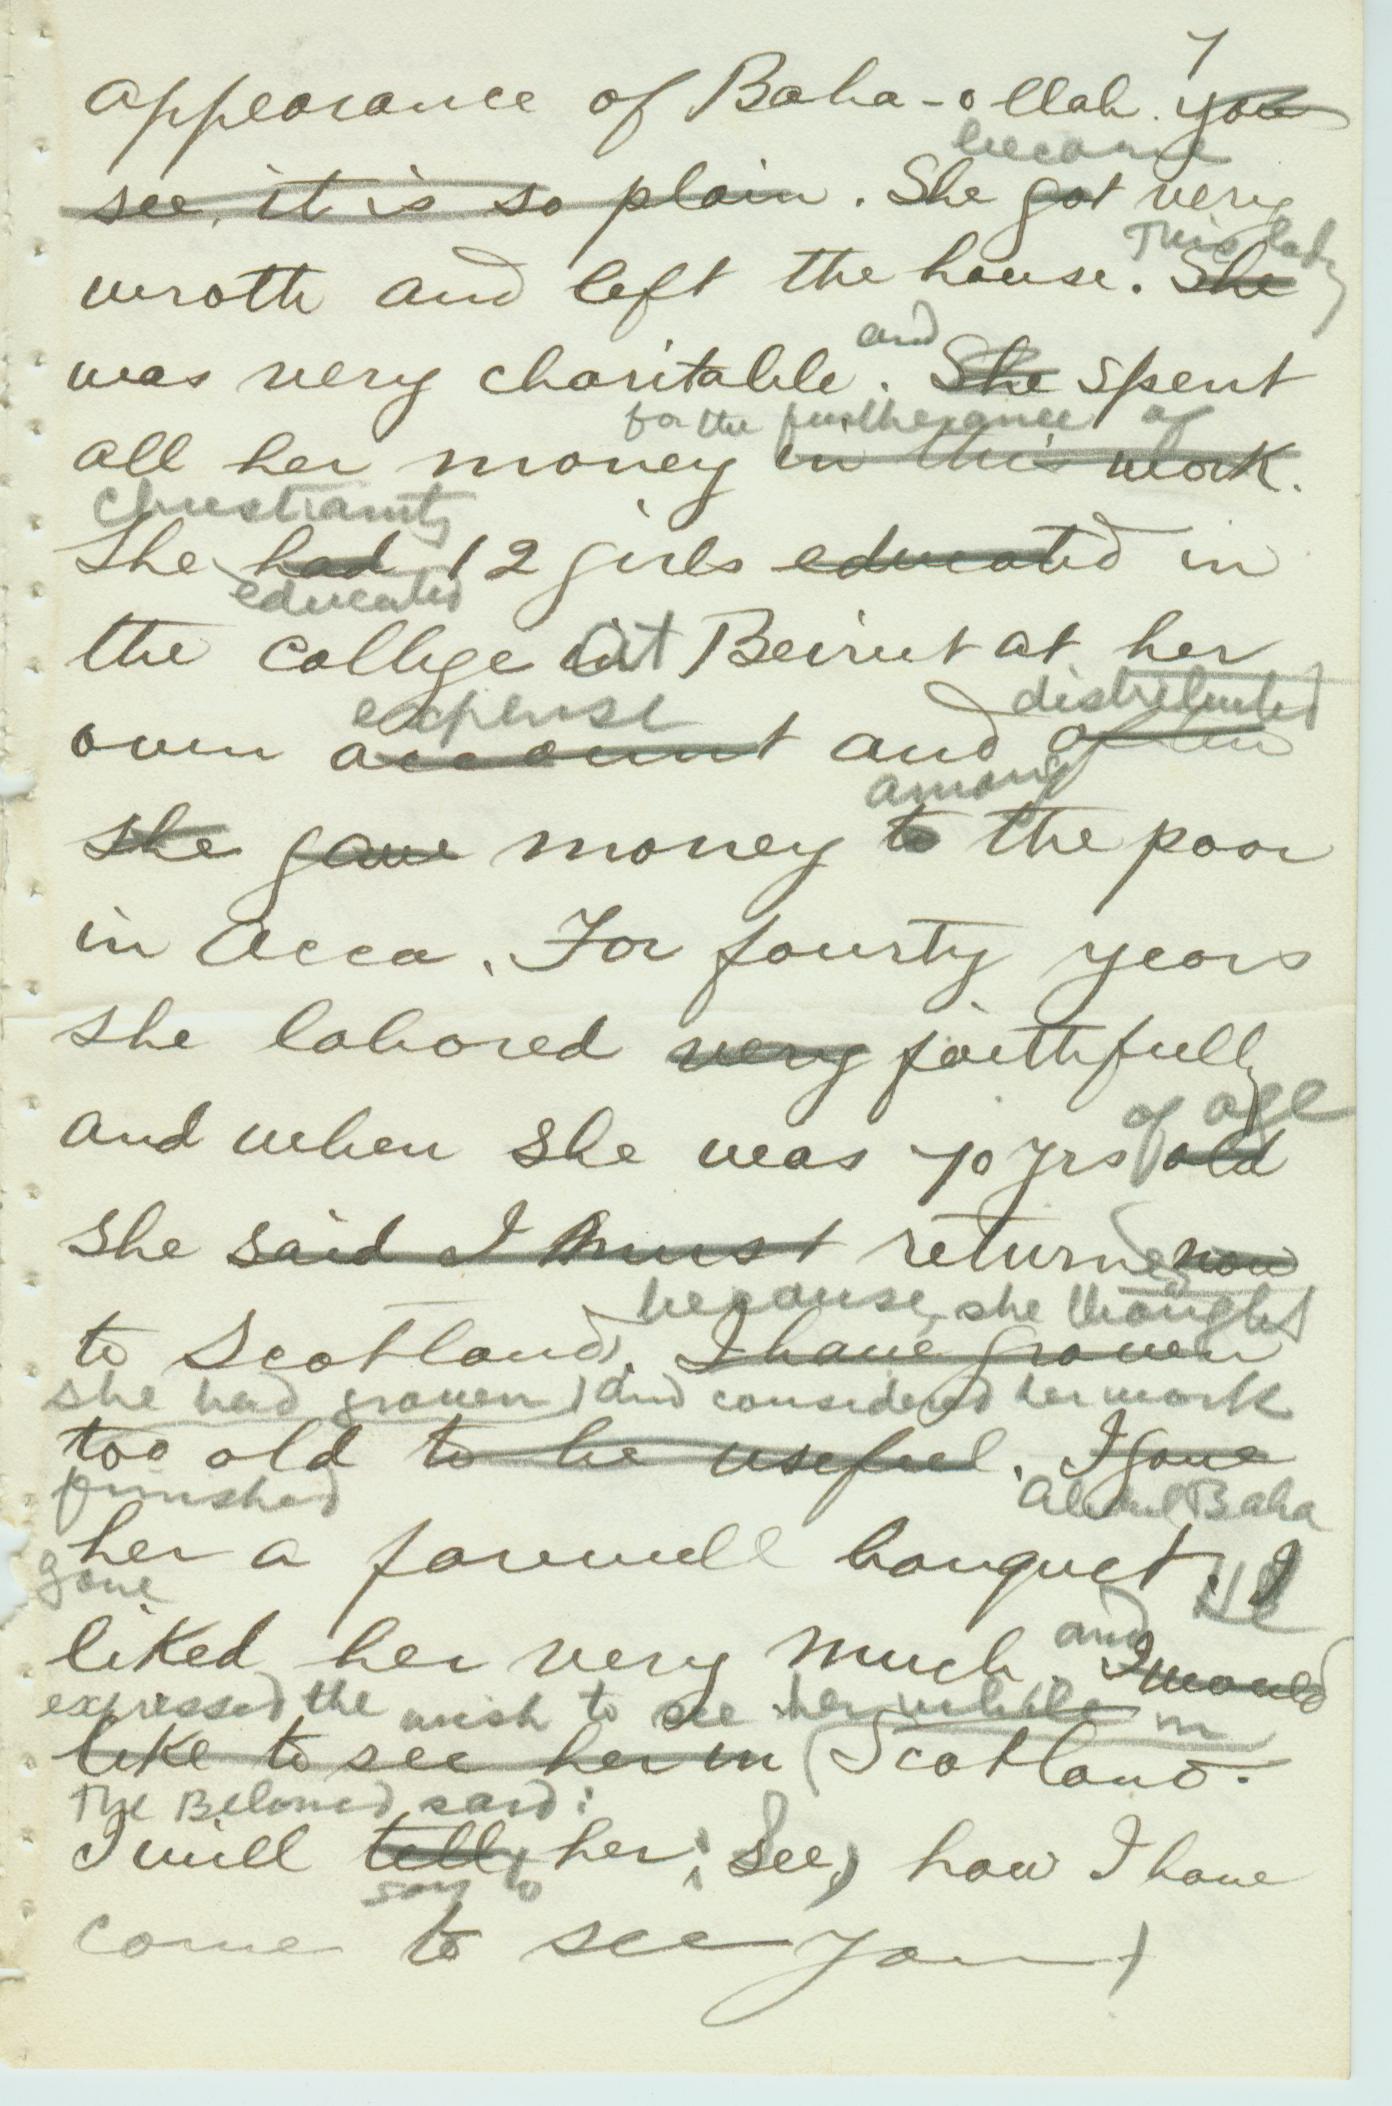 7
appearance of Baha-ollah. you
became
see, it is so plain. She got very
This lady
wroth and left the house. She
and
was very charitable. She spent
for the furtherance of
all her money in this work.
Christianity
She had 12 girls educated in
educated
the college at Beirut at her
expense distributed
own account and often
among
she gave money to the poor
in Acca. For fourty years
she labored very faithfully
of age
and when she was 70 yrs old
she said I must returned now
because, she thought
to Scotland. I have grown
she had grown and considered her work
too old to be useful. I gave
finished Abdul Baha
her a farewell banquet. I He
gave
liked her very much. I would
and
expressed the wish to see her while in
like to see her in Scotland.
The Beloved said:
I will tell her; See, how I have
say to
come to see you